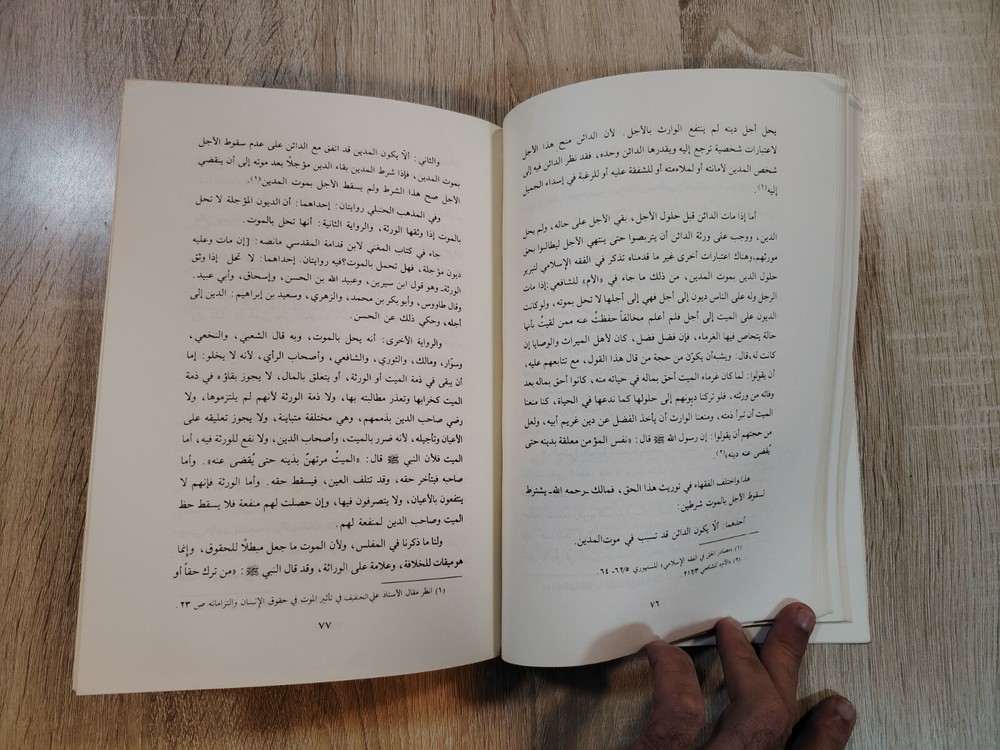 يحل أجل دينه لم ينتفع الوارث بالأجل. لأن الدائن منح هذا الأجل
لاعتبارات شخصية ترجع إليه ويقدرها الدائن وحده، فقد نظر الدائن فيه إلى
شخص المدين لأمانته أو لملاءمته أو للشفقة عليه أو للرغبة في إسداء الجميل
إليه(١).
أما إذا مات الدائن قبل حلول الأجل، بقي الأجل على حاله، ولم يحل
الدين، ووجب على ورثة الدائن أن يتربصوا حتى ينتهي الأجل ليطالبوا بحق
مورثهم. وهناك اعتبارات أخرى غير ما قدمناه تذكر في الفقه الإسلامي لتبرير
حلول الدين بموت المدين، من ذلك ما جاء في «الأم» للشافعي: إذا مات
الرجل وله على الناس ديون إلى أجل فهي إلى أجلها لا تحل بموته، ولو كانت
الديون على الميت إلى أجل فلم أعلم مخالفاً حفظتُ عنه ممن لقيتُ بأنها
حالة يتحاص فيها الغرماء، فإن فضل فضل، كان لأهل الميراث والوصايا إن
كانت له، قال: ويشبه أن يكون من حجة من قال هذا القول، مع تتابعهم عليه،
أن يقولوا: لما كان غرماء الميت أحق بماله في حياته منه، كانوا أحق بماله بعد
وفاته من ورثته، فلو تركنا ديونهم إلى حلولها كما ندعها في الحياة، كنا منعنا
الميت أن تبرأ ذمته، ومنعنا الوارث أن يأخذ الفضل عن دين غريم أبيه، ولعل
من حجتهم أن يقولوا: إن رسول الله ﷺ قال: «نفس المؤمن معلقة بدينه حتى
يُقضى عنه دينه»(٢).
هذا واختلف الفقهاء في توريث هذا الحق، فمالك ـ رحمه الله ـ يشترط
لسقوط الأجل بالموت شرطين:
أحدهما: ألّا يكون الدائن قد تسبب في موت المدين.
(١) «مصادر الحق في الفقه الإسلامي» للسنهوري ٦٢/٥، ٦٤.
(٢) «الأم» للشافعي ٢١٢/٣
٧٦
والثاني: ألّا يكون المدين قد اتفق مع الدائن على عدم سقوط الأجل
بموت المدين، فإذا شرط المدين بقاء الدين مؤجلًا بعد موته إلى أن ينقضي
الأجل صح هذا الشرط ولم يسقط الأجل بموت المدين(١).
وفي المذهب الحنبلي روايتان: إحداهما: أن الديون المؤجلة لا تحل
بالموت إذا وثقها الورثة، والرواية الثانية: أنها تحل بالموت.
جاء في كتاب المغني لابن قدامة المقدسي مانصه: [إن مات وعليه
ديون مؤجلة، فهل تحمل بالموت؟ فيه روايتان. إحداهما: لا تحل إذا وثق
الورثة. وهو قول ابن سيرين، وعبيد الله بن الحسن، وإسحاق، وأبي عبيد.
وقال طاووس، وأبو بكر بن محمد، والزهري، وسعيد بن إبراهيم: الدين إلى
أجله، وحكي ذلك عن الحسن.
والرواية الأخرى: أنه يحل بالموت، وبه قال الشعبي، والنخعي،
وسوّار، ومالك، والثوري، والشافعي، وأصحاب الرأي، لأنه لا يخلو: إما
أن يبقى في ذمة الميت أو الورثة، أو يتعلق بالمال، لا يجوز بقاؤه في ذمة
الميت كخرابها وتعذر مطالبته بها، ولا ذمة الورثة لأنهم لم يلتزموها، ولا
رضي صاحب الدين بذممهم، وهي مختلفة متباينة، ولا يجوز تعليقه على
الأعيان وتأجيله، لأنه ضرر بالميت، وأصحاب الدين، ولا نفع للورثة فيه، أما
الميت فلأن النبي ﷺ قال: «الميتُ مرتهنٌ بدَينه حتى يُقضى عنه». وأما
صاحبه فيتأخر حقه، وقد تتلف العين، فيسقط حقه. وأما الورثة فإنهم لا
ينتفعون بالأعيان، ولا يتصرفون فيها، وإن حصلت لهم منفعة فلا يسقط حظ
الميت وصاحب الدين لمنفعة لهم.
ولنا ما ذكرنا في المفلس، ولأن الموت ما جعل مبطلًا للحقوق، وإنما
هو ميقات للخلافة، وعلامة على الوراثة، وقد قال النبي ﷺ: «من ترك حقاً أو
(١) انظر مقال الأستاذ علي الخفيف في تأثير الموت في حقوق الإنسان والتزاماته ص ٢٣.
٧٧